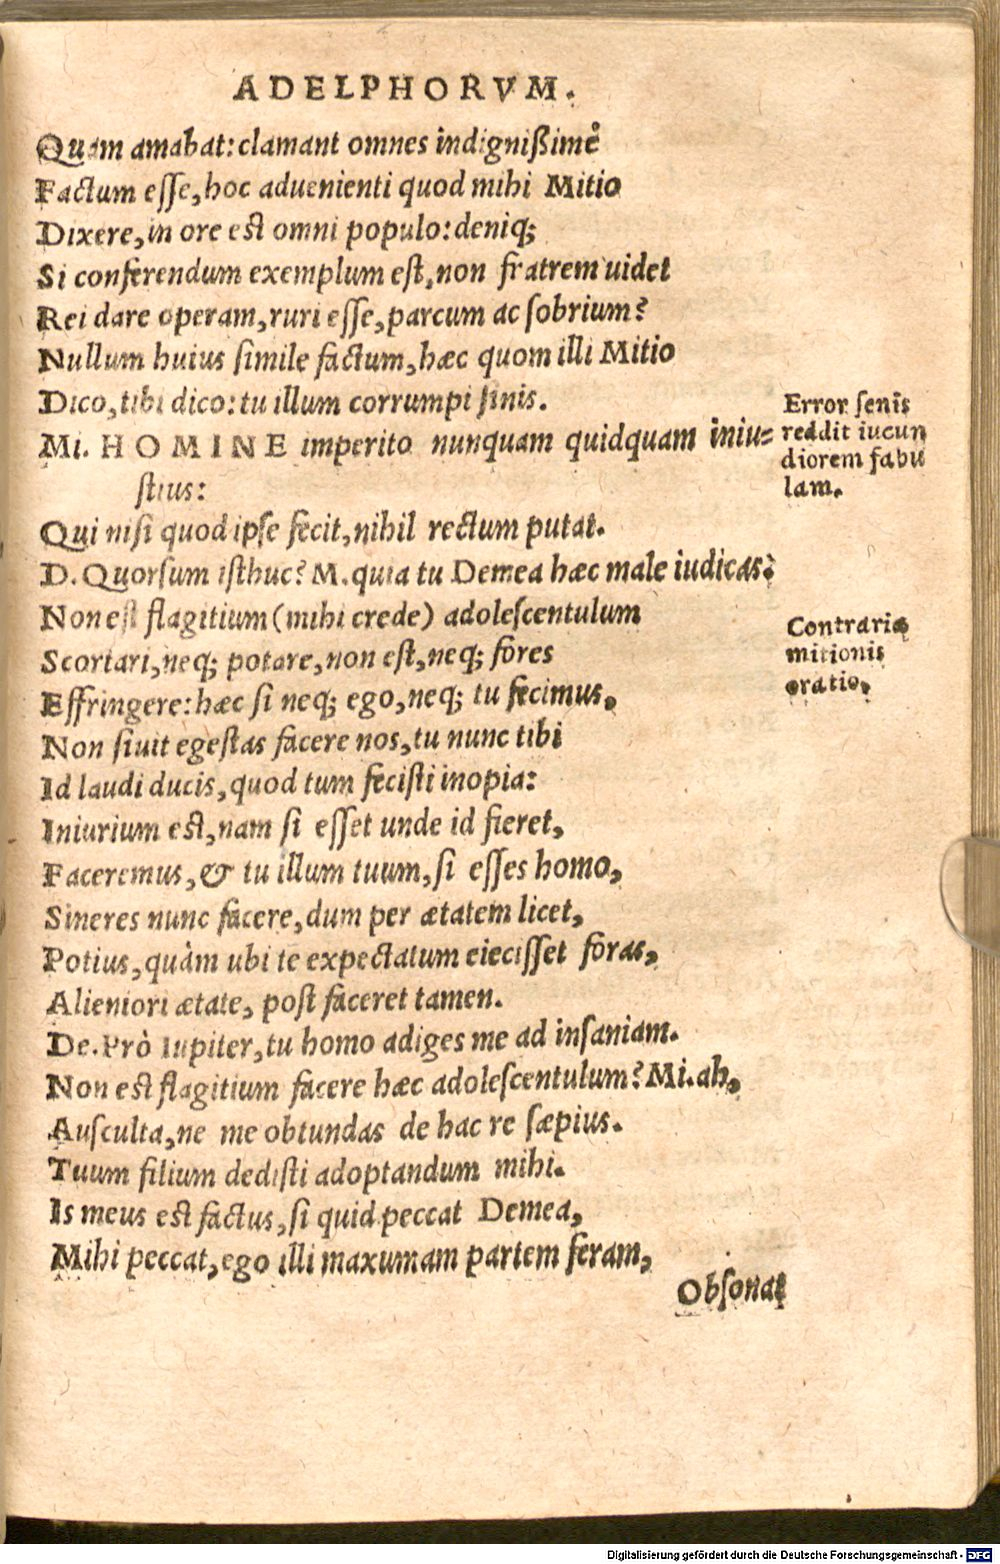 ADELPHORVM.
Quam amabat: clamant omnes indignißimè
Factum eſſe, hoc aduenienti quod mihi Mitio
Dixere, in ore est omni populo: deniq;
Si conferendum exemplum eſt, non fratrem uidet
Rei dare operam, ruri eſſe, parcum ac ſobrium?
Nullum huius ſimile factum, hæc quom illi Mitio
Dico, tibi dico: tu illum corrumpi ſinis.
Error ſenis
reddit iucun
diorem fabu
lam.
Mi. HOMINE imperito nunquam quidquam iniu=
ſtius:
Qui niſi quod ipſe fecit, nihil rectum putat.
D. Quorſum iſthuc? M. quia tu Demea hæc male iudicas.
Non est flagitium (mihi crede) adoleſcentulum
Scortari, neq; potare, non eſt, neq; fores
Contraria
mitionis
oratio.
Effringere: hæc ſi neq; ego, neq; tu fecimus,
Non ſiuit egeſtas facere nos, tu nunc tibi
Id laudi ducis, quod tum feciſti inopia:
Iniurium eſt, nam ſi eſſet unde id fieret,
Faceremus, & tu illum tuum, ſi eſſes homo,
Sineres nunc facere, dum per ætatem licet,
Potius, quàm ubi te expectatum eieciſſet foras,
Alieniori ætate, poſt faceret tamen.
De. Prò Iupiter, tu homo adiges me ad inſaniam.
Non eſt flagitium facere hæc adoleſcentulum? Mi. ah,
Auſculta, ne me obtundas de hac re ſæpius.
Tuum filium dediſti adoptandum mihi.
Is meus est factus, ſi quid peccat Demea,
Mihi peccat, ego illi maxumam partem feram,
Obſonat
Digitalisierung gefördert durch die Deutsche Forschungsgemeinschaft - DFG